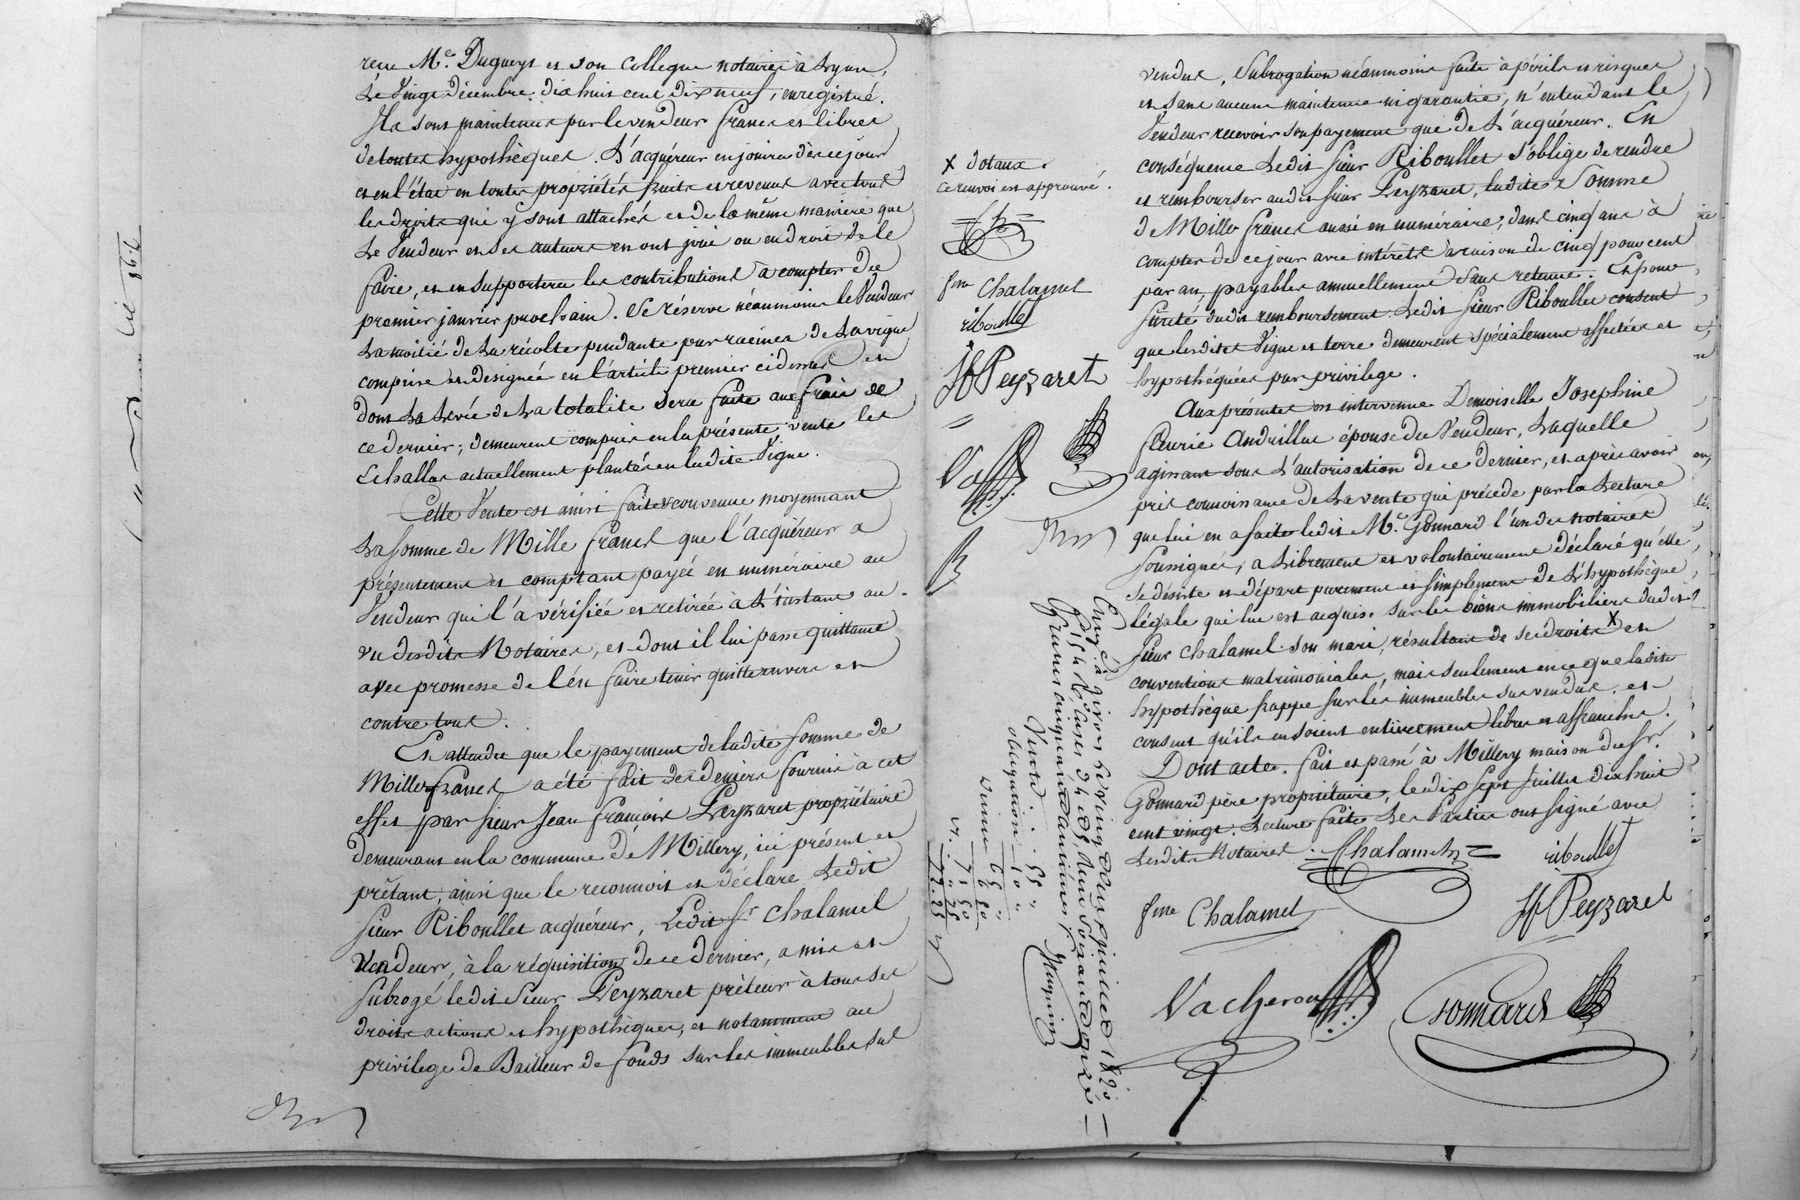 reçu Me. Dugueyt et son collegue notaires à Lyon,
Le Vingt décembre dix huit cent dix neuf, enregistré.
Ils sont maintenus par le vendeur francs et libres
de toutes hypothèques. L'acquéreur en jouira dès ce jour
et en l'état en toutes propriétés fruits et revenus avec tous
les droits qui y sont attachés et de la même maniere que
Le Vendeur et ses auteurs en ont joui ou eu droit de le
faire, et en supportera les contributions à compter du
premier janvier prochain. Se réserve néanmoins le Vendeur
La moitié de La récolte pendante par racines de La vigne
comprise et designée en l'article premier ci dessus et
dont La Levée de La totalité sera faite aux frais de
ce dernier; demeurent compris en la présente vente les
Echallas actuellement plantés en ladite Vigne.
Cette Vente est ainsi faite & convenue moyennant
La somme de Mille francs que l'acquéreur a
présentement et comptant payée en numéraire au
Vendeur qui l'a vérifiée et retirée à L'instant au
vu desdits Notaires, et dont il lui passe quittance
avec promesse de l'en faire tenir quitte envers et
contre tous.
Et attendu que le payement de ladite somme de
Mille francs a été fait des deniers fournis à cet
effet par sieur Jean François Peyzaret propriétaire
demeurant en la commune de Millery, ici présent et
prêtant, ainsi que le reconnoit et déclare Ledit
sieur Riboullet acquéreur, Ledit Sr. Chalamel
Vendeur, à la réquisition de ce dernier, a mis et
subrogé ledit Sieur Peyzaret prêteur à tous ses
droits actions et hypothèques, et notamment au
privilege de Bailleur de fonds sur les immeubles sus
X dotaux.
Ce renvoi est approuvé.
fme Chalamel
riboullet
Jf Peyzaret
Va
vendus, Subrogation néanmoins faite à périls et risques
et sans aucune maintenue ni garantie, n'entendant le
Vendeur recevoir son payement que de L'acquéreur. En
conséquence Ledit sieur Riboullet s'oblige de rendre
et rembourser audit sieur Peyzaret, ladite Somme
de Mille francs aussi en numéraire, dans cinq ans à
compter de ce jour avec intérêts à raison de cinq pour cent
par an payables annuellement sans retenue. Et pour
sureté dudit remboursement Ledit sieur Riboullet consent
que lesdites Vigne et terre demeurent spécialement affectées et
hypothéquées par privilege.
Aux présentes est intervenue Demoiselle Josephine
fleurie Andrillat épouse du Vendeur, Laquelle
agissant sous L'autorisation de ce dernier, et après avoir
pris connoissance de La vente qui précède par la Lecture
que lui en a faite ledit Me. Gonnard l'un des notaires
soussignés, a Librement et volontairement déclaré qu'elle
se désiste et départ purement et simplement de L'hypothèque
légale qui lui est acquise sur les biens immobiliers dudit
sieur Chalamel son mari, résultant de ses droits X et
conventions matrimoniales, mais seulement en ce que ladite
hypothèque frappe sur les immeubles sus vendus, et
consent qu'ils en soient entièrement libres et affranchis.
Dont acte. fait et passé à Millery maison du Sr.
Gonnard père propriétaire, le dix sept Juillet dix huit
cent vingt. Lecture faite Les Parties ont signé avec
Lesdits Notaires.
Chalamel
riboullet
fme Chalamel
Jf Peyzaret
Vacheron
Gonnard
Enregé. à Givors le vingt deux juillet 1820
Vente . 55 "
obligation . 10 "
65 "
6 50
71 50
72.25